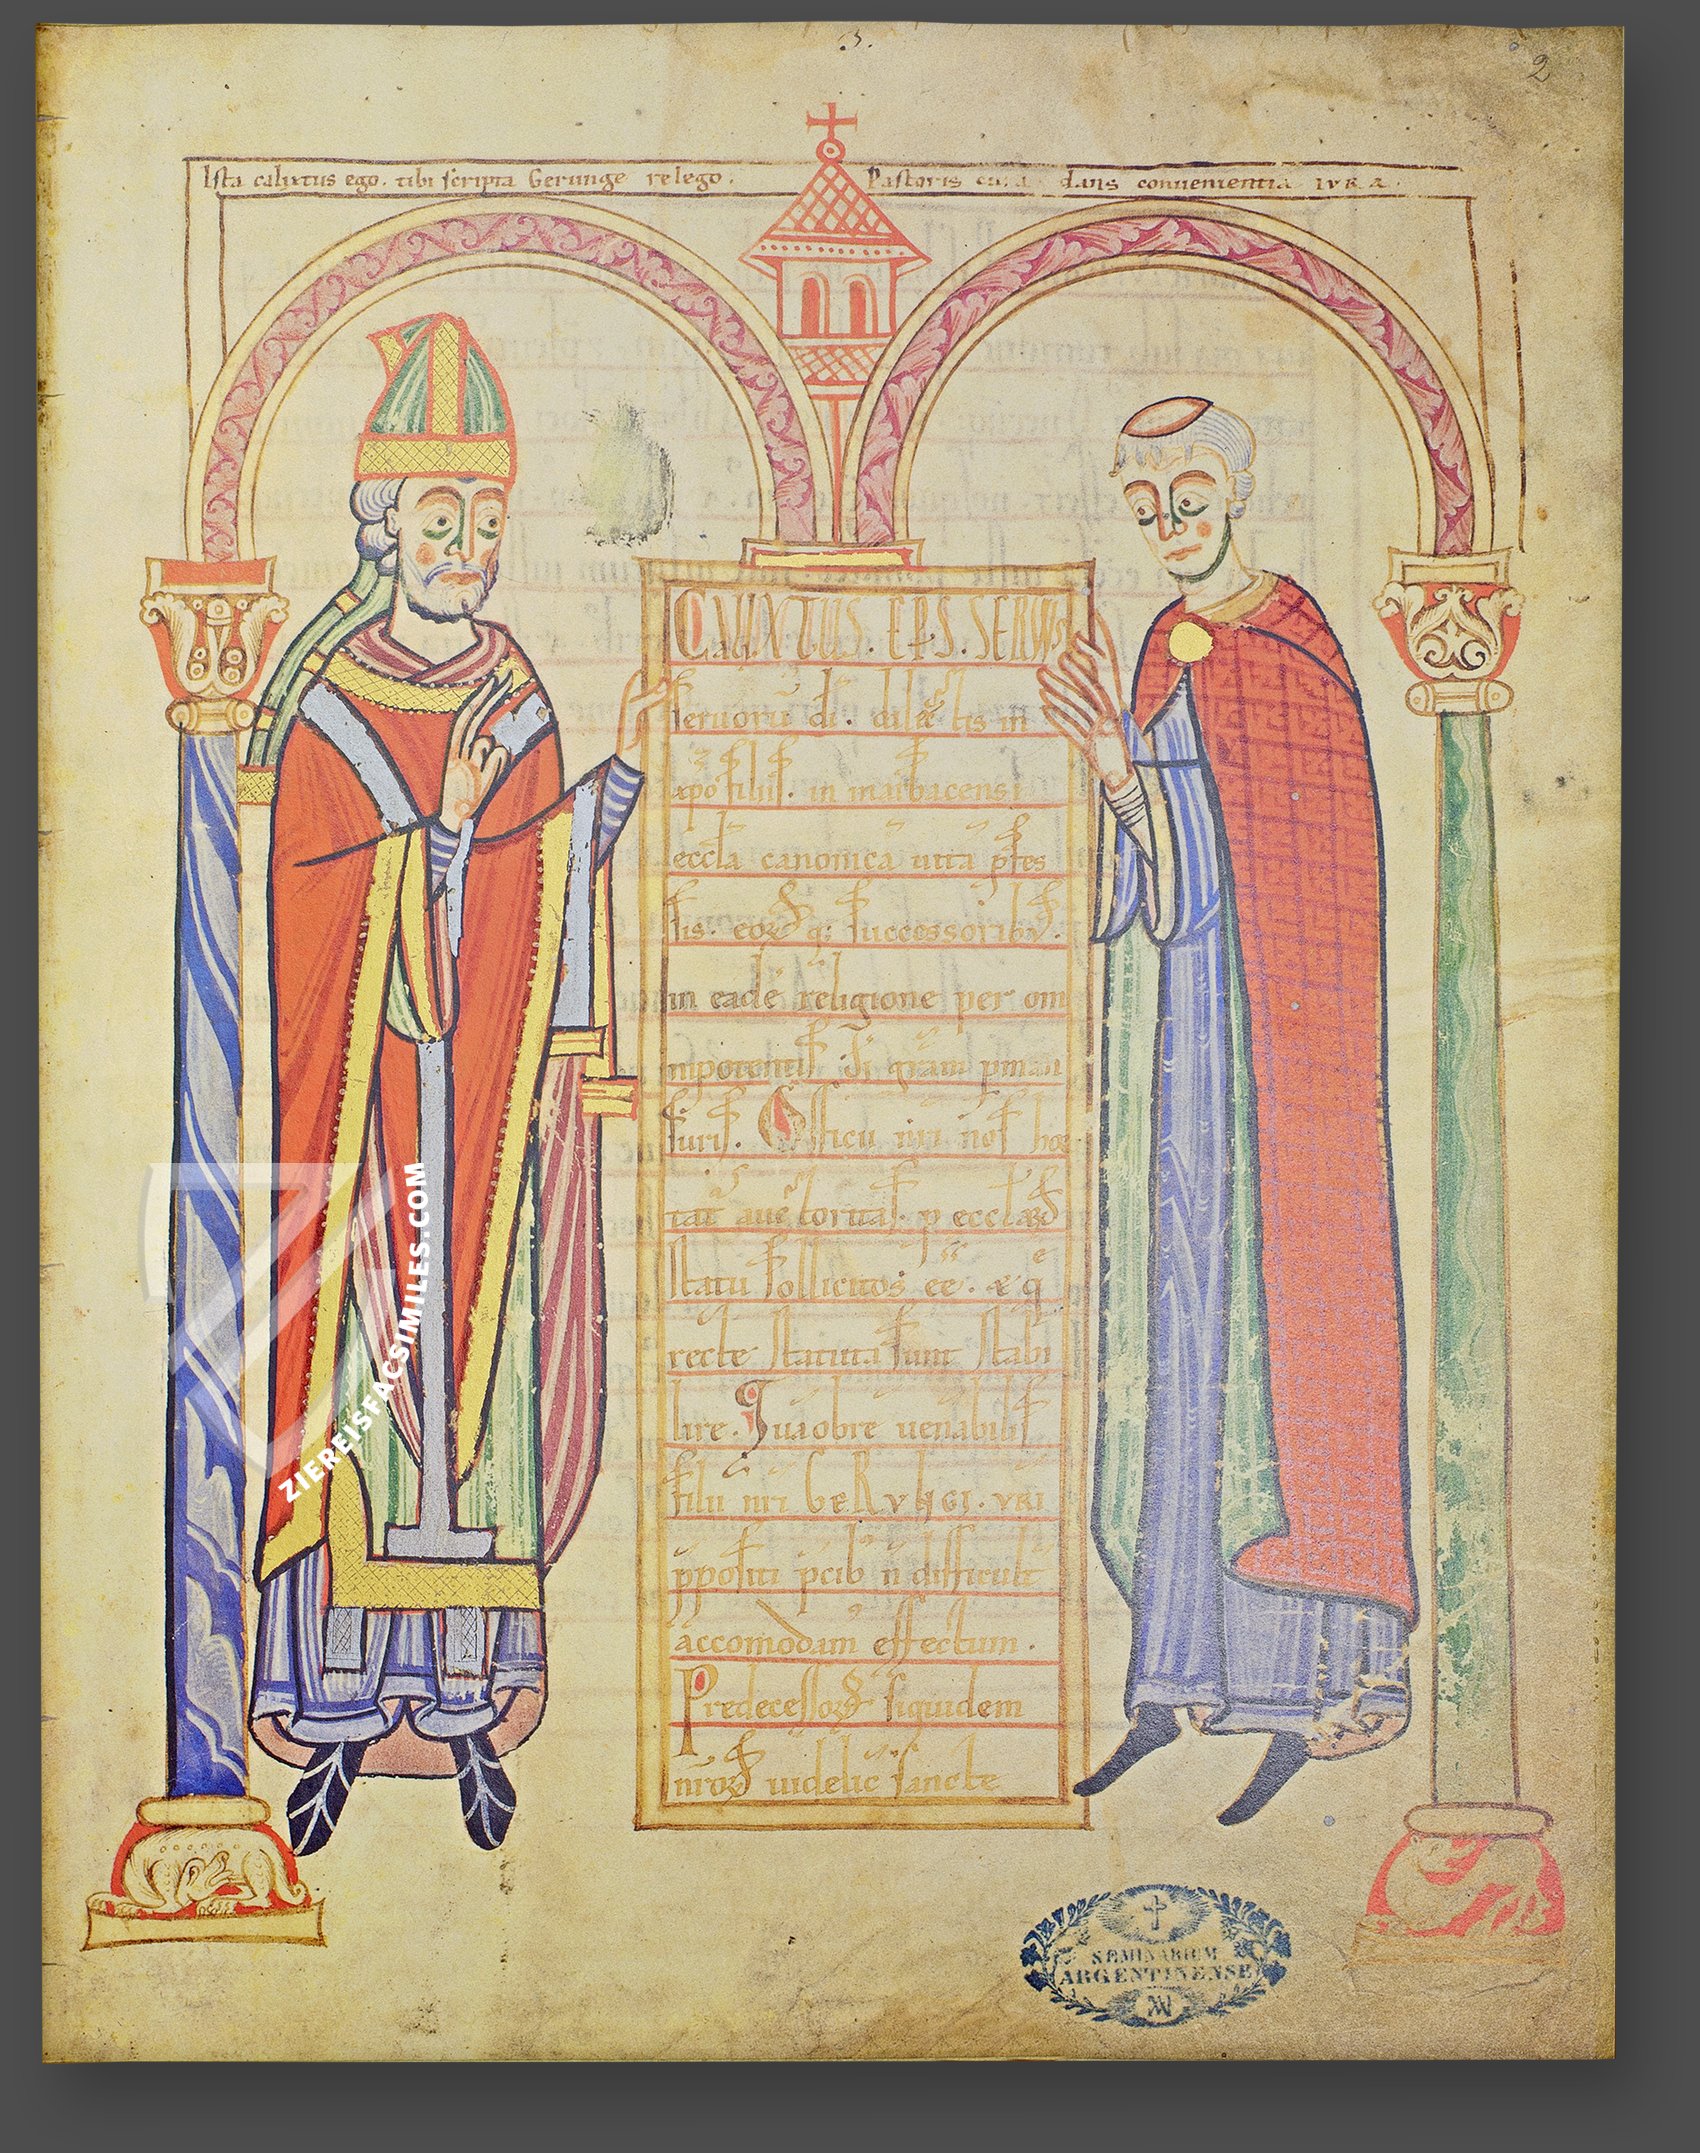 .3.
2
Ista calixtus ego. tibi scripta Gerunge relego. Pastoris cura dans convenientia IVRA.
CaliXTUS. EPS. SERVVS
seruorū dī. dilectis in
xpo filiis. in marbacensi
eccla canonica uita pfes
sis. eorꝝ q; successoribꝰ.
in eadē religione per om
nipotentis dī gram pman
suris. Officii nri nos hor
tat auctoritas. p ecclarꝝ
statu sollicitos ēē. & q̄
recte statuta sunt stabi
lire. Quaobrē uenabilis
filii nri GeRVNGI. VRI
ppositi pcib n difficult
accomodam effectum.
Predecessorꝝ siquidem
nrorꝝ uidelic sancte
ZIEREISFACSIMILES.COM
SEMINARIUM
ARGENTINENSE